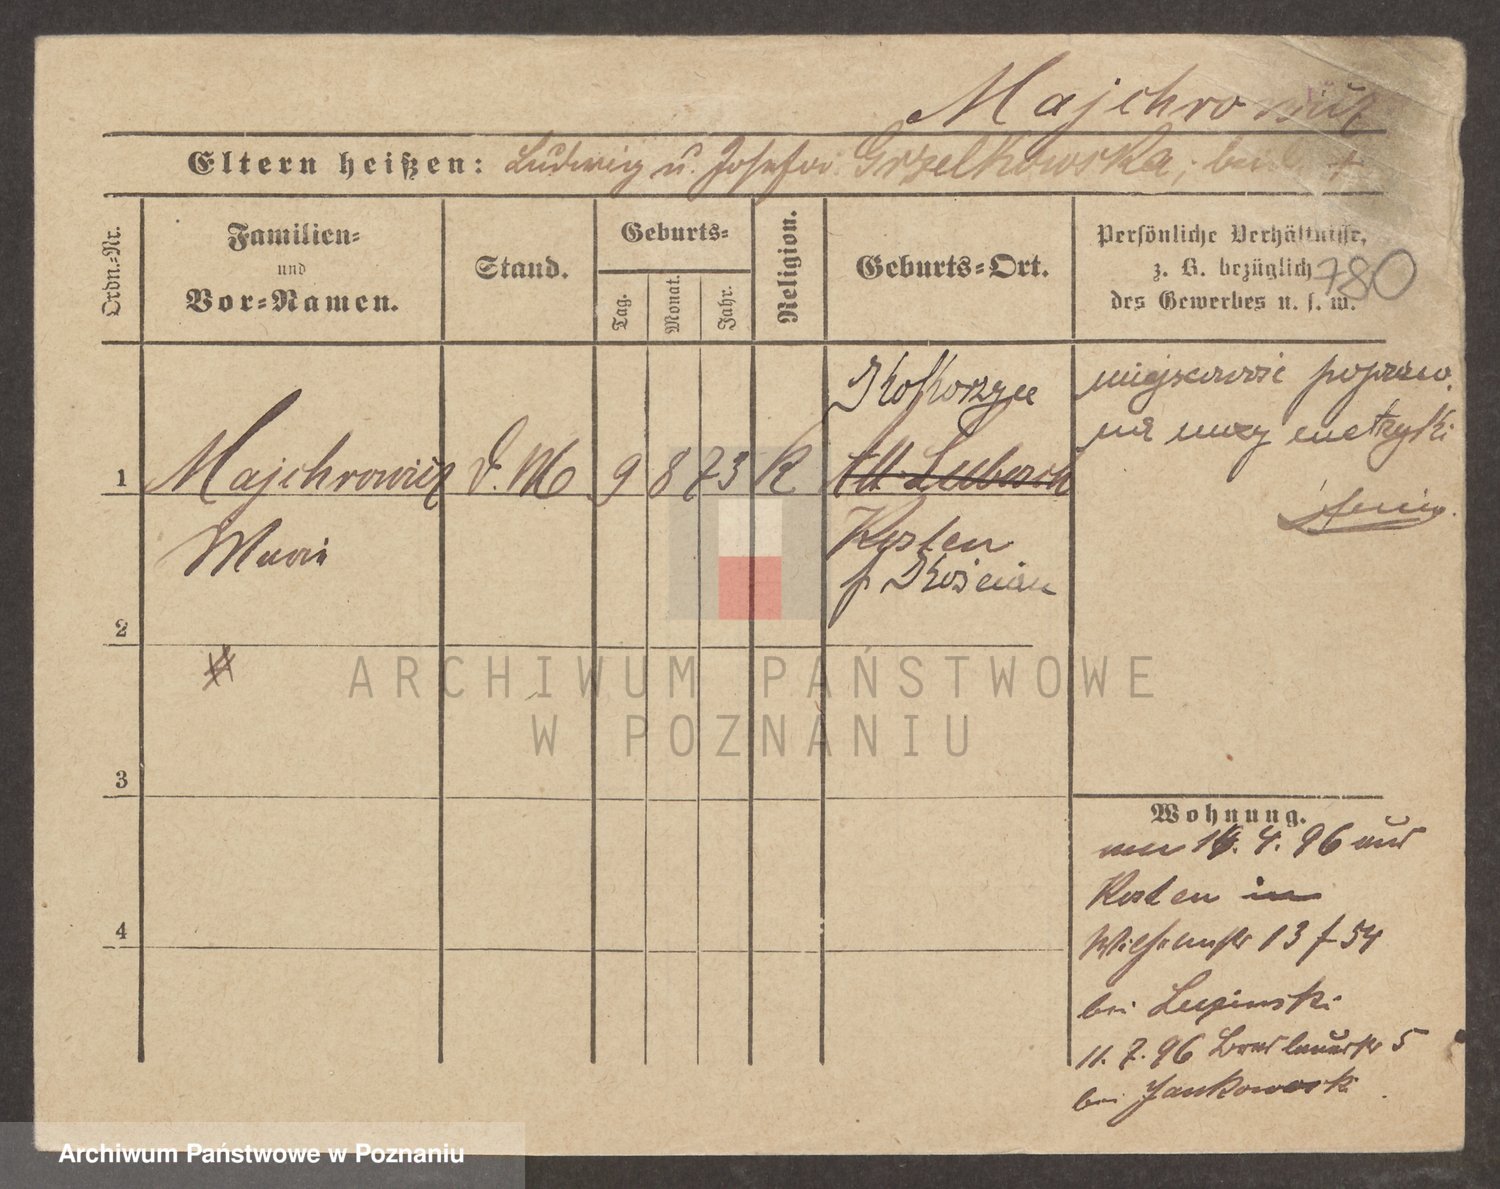 Majchrowicz
Eltern heißen: Ludwig u. Josefa Grzelkowska, beide +
Ordn.-Nr.
Familien-
und
Vor-Namen.
Stand.
Geburts-
Tag.
Monat.
Jahr.
Religion.
Geburts-Ort.
Persönliche Verhältnisse,
z. B. bezüglich
des Gewerbes u. s. w.
780
Kokorzyn
miejscowość popraw.
na mocy metryki
1
Majchrowicz
D. M
9
8
73
K
Alt Lubosch
Marie
Kosten
p Kościan
2
3
4
Wohnung.
16. 4. 96 aus
Kosten in
Wilhelmstr 13 f 54
bei Lupinski
11. 7. 96 Breslauerstr 5
bei Jankowski
ARCHIWUM PAŃSTWOWE
W POZNANIU
Archiwum Państwowe w Poznaniu